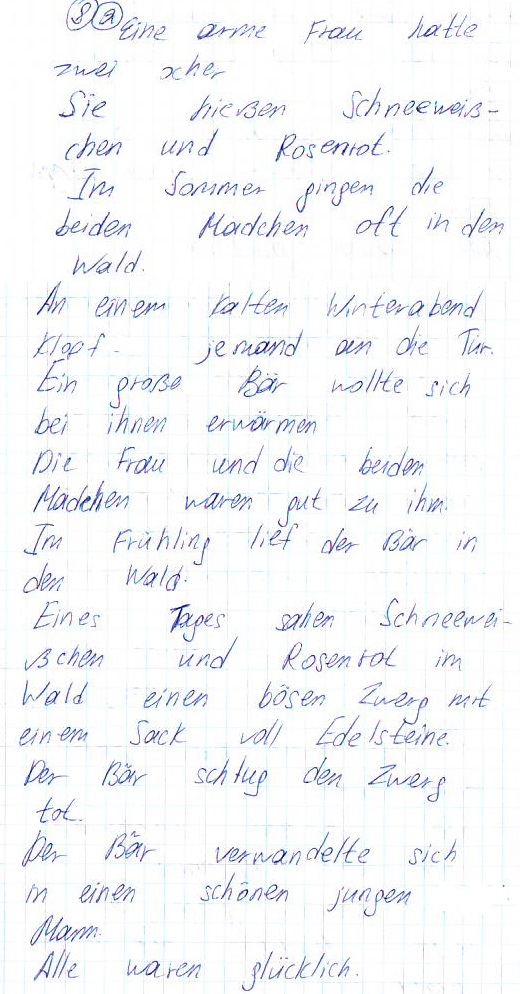 8 a Eine arme Frau hatte
zwei
Sie hießen Schneeweiß-
chen und Rosenrot.
Im Sommer gingen die
beiden Mädchen oft in den
Wald.
An einem kalten Winterabend
klopf- jemand an die Tür.
Ein große Bär wollte sich
bei ihnen erwärmen
Die Frau und die beiden
Mädchen waren gut zu ihm.
Im Frühling lief der Bär in
den Wald.
Eines Tages sahen Schneewei-
ßchen und Rosenrot im
Wald einen bösen Zwerg mit
einem Sack voll Edelsteine.
Der Bär schlug den Zwerg
tot.
Der Bär verwandelte sich
in einen schönen jungen
Mann.
Alle waren glücklich.